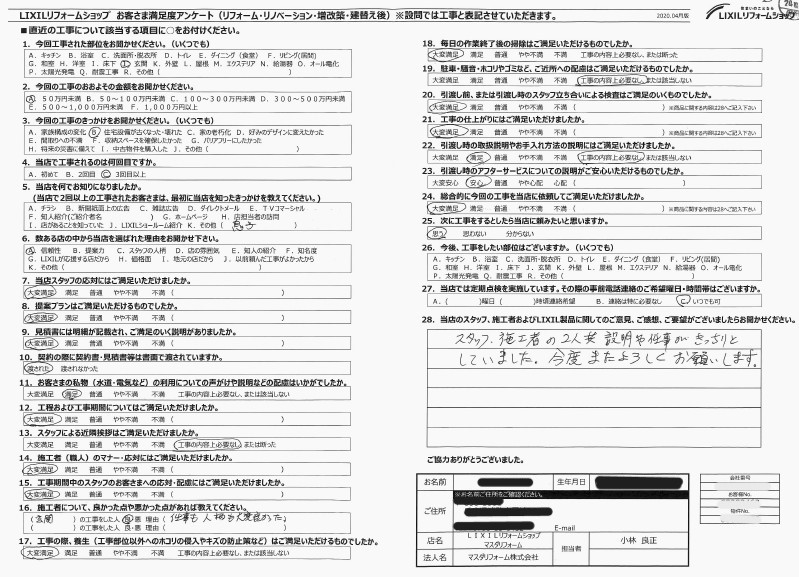 LIXILリフォームショップ お客さま満足度アンケート（リフォーム・リノベーション・増改築・建替え後）※設問では工事と表記させていただきます。
2020.04月版
LIXILリフォームショップ
■直近の工事について該当する項目に○をお付けください。
1．今回工事された部位をお聞かせください。（いくつでも）
A．キッチン B．浴室 C．洗面所・脱衣所 D．トイレ E．ダイニング（食堂） F．リビング(居間)
G．和室 H．洋室 I．床下 J．玄関 K．外壁 L．屋根 M．エクステリア N．給湯器 O．オール電化
P．太陽光発電 Q．耐震工事 R．その他（ ）
2．今回の工事のおおよその金額をお聞かせください。
A．50万円未満 B．50～100万円未満 C．100～300万円未満 D．300～500万円未満
E．500～1,000万円未満 F．1,000万円以上
3．今回の工事のきっかけをお聞かせください。（いくつでも）
A．家族構成の変化 B．住宅設備が古くなった・壊れた C．家の老朽化 D．好みのデザインに変えたかった
E．間取りへの不満 F．収納スペースを確保したかった G．バリアフリーにしたかった
H．将来の災害に備えて I．中古物件を購入した J．その他（ ）
4．当店で工事されるのは何回目ですか。
A．初めて B．2回目 C．3回目以上
5．当店を何でお知りになりましたか。
（当店で2回以上の工事されたお客さまは、最初に当店を知ったきっかけを教えてください。）
A．チラシ B．新聞紙面上の広告 C．雑誌広告 D．ダイレクトメール E．TVコマーシャル
F．知人紹介(ご紹介者名 ) G．ホームページ H．店担当者の訪問
I．店があることを知っていた J．LIXILショールーム紹介 K．その他（ 息子 ）
6．数ある店の中から当店を選ばれた理由をお聞かせ下さい。
A．信頼性 B．提案力 C．スタッフの人柄 D．店の雰囲気 E．知人の紹介 F．知名度
G．LIXILが応援する店だから H．価格面 I．地元の店だから J．以前頼んだ工事がよかったから
K．その他（ ）
7．当店スタッフの応対にはご満足いただけましたか。
大変満足 満足 普通 やや不満 不満（ ）
8．提案プランはご満足いただけるものでしたか。
大変満足 満足 普通 やや不満 不満（ ）
9．見積書には明細が記載され、ご満足のいく説明がありましたか。
大変満足 満足 普通 やや不満 不満（ ）
10．契約の際に契約書・見積書等は書面で渡されていますか。
渡された 渡されなかった
11．お客さまの私物（水道・電気など）の利用についての声がけや説明などの配慮はいかがでしたか。
大変満足 満足 普通 やや不満 不満 工事の内容上必要なし、または該当なし
12．工程および工事期間についてはご満足いただけましたか。
大変満足 満足 普通 やや不満 不満（ ）
13．スタッフによる近隣挨拶はご満足いただけましたか。
大変満足 満足 普通 やや不満 不満 工事の内容上必要なし、または断った
14．施工者（職人）のマナー・応対にはご満足いただけましたか。
大変満足 満足 普通 やや不満 不満（ ）
15．工事期間中のスタッフのお客さまへの応対・配慮にはご満足いただけましたか。
大変満足 満足 普通 やや不満 不満（ ）
16．施工者について、良かった点や悪かった点があれば教えてください。
（ 玄関 ）の工事をした人 良・悪 理由（ 仕事も人柄も大変良かった。
（ ）の工事をした人 良・悪 理由（ ）
17．工事の際、養生（工事部位以外へのホコリの侵入やキズの防止策など）はご満足いただけるものでしたか。
大変満足 満足 普通 やや不満 不満 工事の内容上必要なし、または該当なし
18．毎日の作業終了後の掃除はご満足いただけるものでしたか。
大変満足 満足 普通 やや不満 不満 工事の内容上必要なし、または断った
19．駐車・騒音・ホコリやゴミなど、ご近所への配慮はご満足いただけるものでしたか。
大変満足 満足 普通 やや不満 不満 工事の内容上必要なし、または該当なし
20．引渡し前、または引渡し時のスタッフ立ち合いによる検査はご満足のいくものでしたか。
大変満足 満足 普通 やや不満 不満（ ）※商品に関する内容は28へご記入下さい
21．工事の仕上がりにはご満足いただけましたか。
大変満足 満足 普通 やや不満 不満（ ）※商品に関する内容は28へご記入下さい
22．引渡し時の取扱説明やお手入れ方法の説明にはご満足いただけましたか。
大変満足 満足 普通 やや不満 不満 工事の内容上必要なし、または該当なし
23．引渡し時のアフターサービスについての説明がご安心いただけるものでしたか。
大変安心 安心 普通 やや心配 心配（ ）
24．総合的に今回の工事を当店に依頼してご満足いただけましたか。
大変満足 満足 普通 やや不満 不満（ ）※商品に関する内容は28へご記入下さい
25．次に工事をするとしたら当店に頼みたいと思いますか。
思う 思わない 分からない
26．今後、工事をしたい部位はございますか。（いくつでも）
A．キッチン B．浴室 C．洗面所・脱衣所 D．トイレ E．ダイニング（食堂） F．リビング(居間)
G．和室 H．洋室 I．床下 J．玄関 K．外壁 L．屋根 M．エクステリア N．給湯器 O．オール電化
P．太陽光発電 Q．耐震工事 R．その他（ ）
27．当店では定期点検を実施しています。その際の事前電話連絡のご希望曜日・時間帯はございますか。
A．（ ）曜日（ ）時頃連絡希望 B．連絡は特に必要なし C．いつでも可
28．当店のスタッフ、施工者およびLIXIL製品に関してのご意見、ご感想、ご要望がございましたらお聞かせください。
スタッフ、施工者の2人共 説明や仕事がきっちりと
していました。今度またよろしくお願いします。
ご協力ありがとうございました。
お名前
生年月日
※お名前ご住所をご確認ください。
ご住所
E-mail
店名
LIXILリフォームショップ
マスタリフォーム
担当者
小林 良正
法人名
マスタリフォーム株式会社
会社番号
お客様No.
物件No.